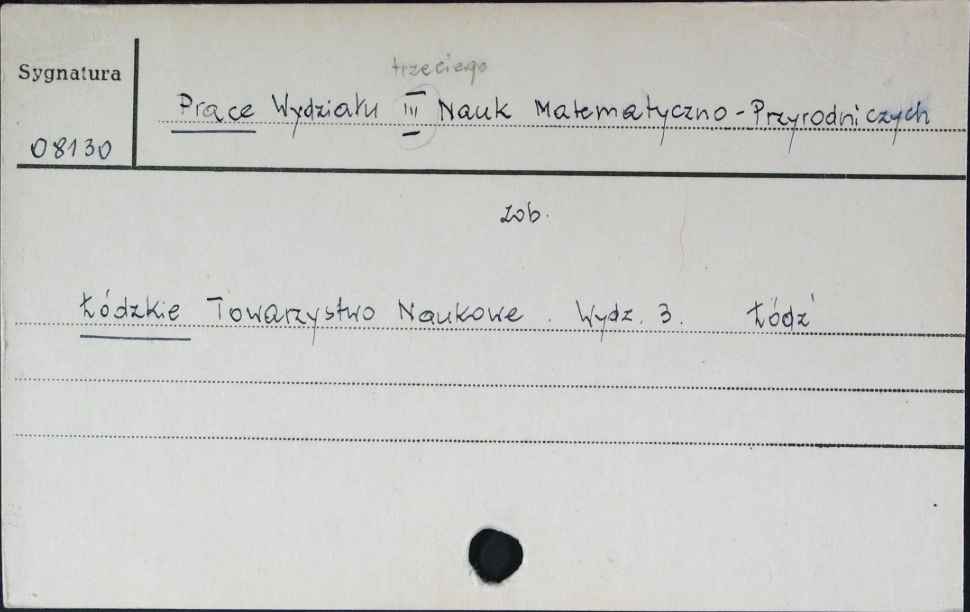 Sygnatura
trzeciego
Prace Wydziału III Nauk Matematyczno-Przyrodniczych
08130
zob.
Łódzkie Towarzystwo Naukowe. Wydz. 3. Łódź